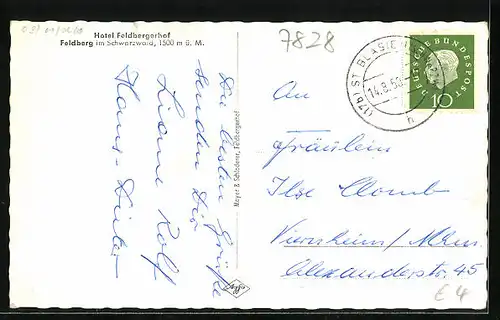 Hotel Feldbergerhof
Feldberg im Schwarzwald, 1500 m ü. M.
7828
Die besten Grüße
senden Dir
Liane Rolf
Hans-Dieter
Meyer & Schladerer, Feldbergerhof
(17b) ST BLASIEN
14.8.59
h
DEUTSCHE BUNDESPOST
10
An
Fräulein
Ilse Clomb
Viernheim/Mhm.
Alexanderstr. 45
€ 4